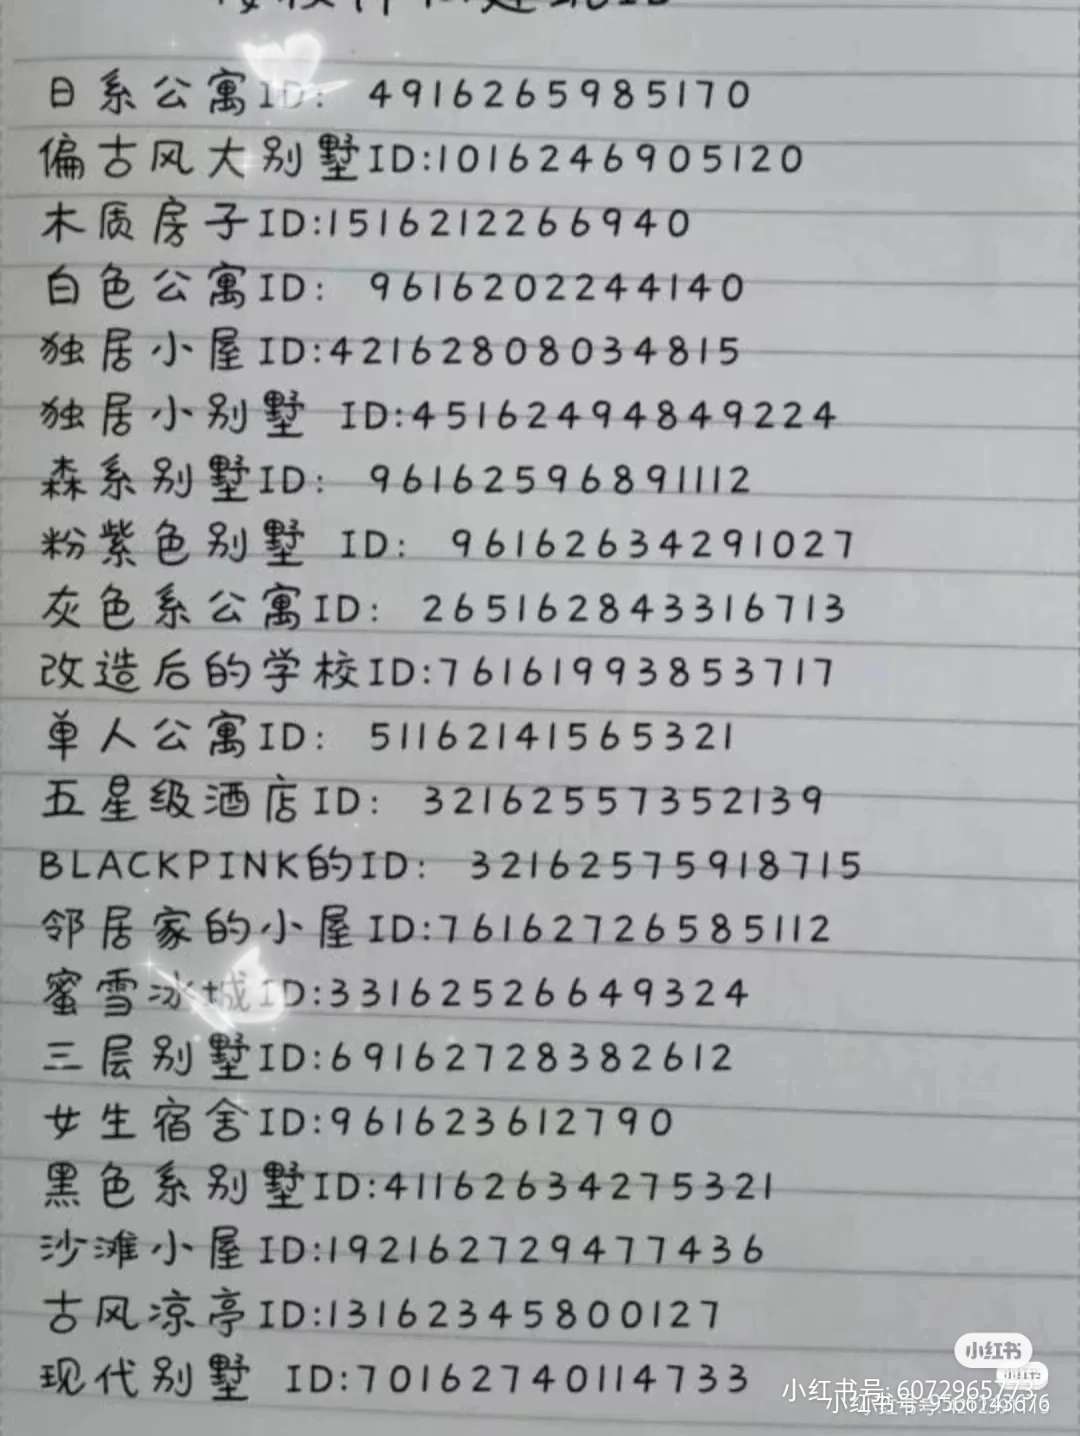 日系公寓ID: 4916265985170
偏古风大别墅ID:1016246905120
木质房子ID:1516212266940
白色公寓ID: 9616202244140
独居小屋ID:42162808034815
独居小别墅 ID:45162494849224
森系别墅ID: 96162596891112
粉紫色别墅 ID: 96162634291027
灰色系公寓ID: 265162843316713
改造后的学校ID:76161993853717
单人公寓ID: 51162141565321
五星级酒店ID: 32162557352139
BLACKPINK的ID: 32162575918715
邻居家的小屋ID:76162726585112
蜜雪冰城ID:33162526649324
三层别墅ID:69162728382612
女生宿舍ID:961623612790
黑色系别墅ID:41162634275321
沙滩小屋ID:192162729477436
古风凉亭ID:13162345800127
现代别墅 ID:70162740114733
小红书
小红书
小红书号: 6072965773
小红书号: 9566143676